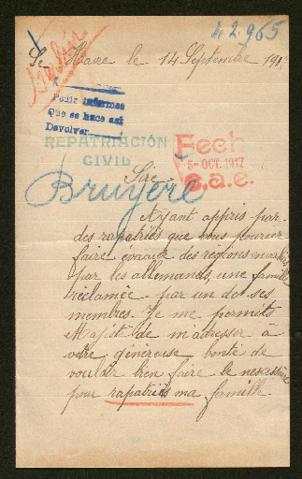 42.965
Le Havre le 14 Septembre 191
Pedir informes
Que se hace así
Devolver
REPATRIACIÓN
CIVIL
Fech
5- OCT. 1917
S.a.e.
Sire
Bruyere
Ayant appris par
des rapatriés que vous pouviez
faire évacué des régions
par les allemands, une famille
réclamée par un de ses
membres. Je me permets
Majesté de m'adresser à
votre généreuse bonté de
vouloir bien faire le nécessaire
pour rapatriés ma famille